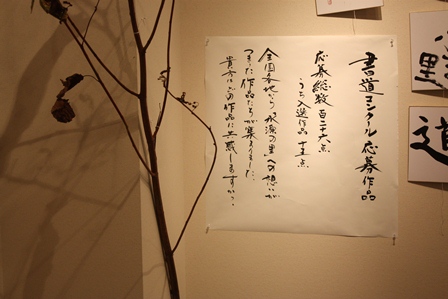 書道コンクール応募作品
応募総数 百二十六点
うち入選作品 十五点
全国各地から 水源の里への想いが
つまった作品たちが集まりました。
貴方はどの作品に共感しますか?
里
道